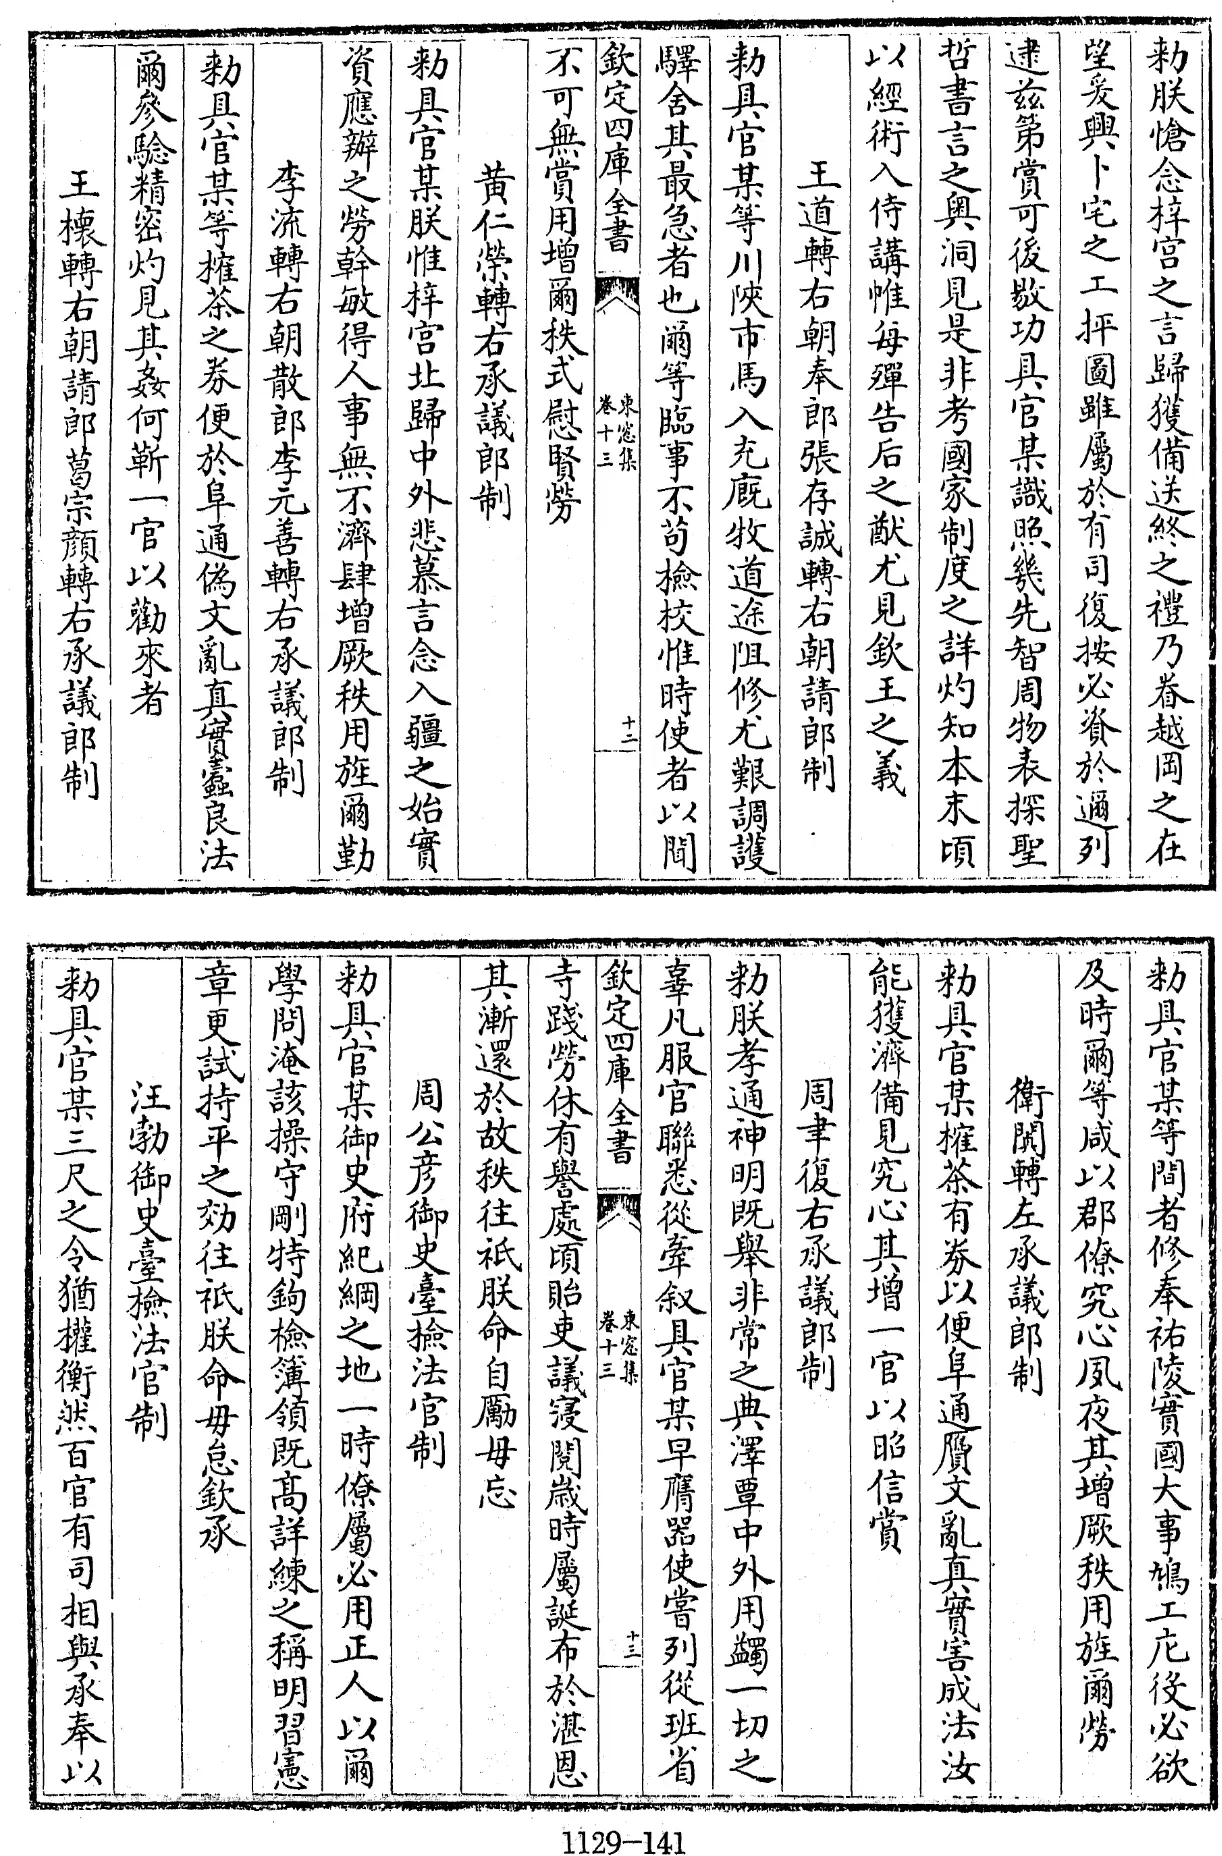 勅朕愴念梓宫之言歸獲備送終之禮乃眷越岡之在
望爰興卜宅之工抨圖雖屬於有司復按必資於邇列
逮兹第賞可後敭功具官某識照幾先智周物表探聖
哲書言之奥洞見是非考國家制度之詳灼知本末頃
以經術入侍講帷每殫告后之猷尤見欽王之義
王道轉右朝奉郎張存誠轉右朝請郎制
勅具官某等川陜市馬入充廐牧道途阻修尤艱調護
驛舍其最急者也爾等臨事不苟檢校惟時使者以聞
欽定四庫全書
東窓集
卷十三
十二
不可無賞用增爾秩式慰賢勞
黄仁榮轉右承議郎制
勅具官某朕惟梓宫北歸中外悲慕言念入疆之始實
資應辦之勞幹敏得人事無不濟肆增厥秩用旌爾勤
李流轉右朝散郎李元善轉右承議郎制
勅具官某等搉茶之券便於阜通偽文亂真實蠧良法
爾參驗精密灼見其姦何靳一官以勸來者
王櫰轉右朝請郎葛宗顔轉右承議郎制
勅具官某等間者修奉祐陵實國大事鳩工庀役必欲
及時爾等咸以郡僚究心夙夜其增厥秩用旌爾勞
衛閲轉左承議郎制
勅具官某搉茶有券以便阜通贋文亂真實害成法汝
能獲濟備見究心其增一官以昭信賞
周聿復右承議郎制
勅朕孝通神明既舉非常之典澤覃中外用蠲一切之
辜凡服官聯悉從牽叙具官某早膺器使嘗列從班省
欽定四庫全書
東窓集
卷十三
十三
寺踐勞休有譽處頃貽吏議寖閲歲時屬誕布於湛恩
其漸還於故秩往祇朕命自勵毋忘
周公彦御史臺檢法官制
勅具官某御史府紀綱之地一時僚屬必用正人以爾
學問淹該操守剛特鉤檢簿領既高詳練之稱明習憲
章更試持平之効往祇朕命毋怠欽承
汪勃御史臺檢法官制
勅具官某三尺之令猶權衡然百官有司相與承奉以
1129-141